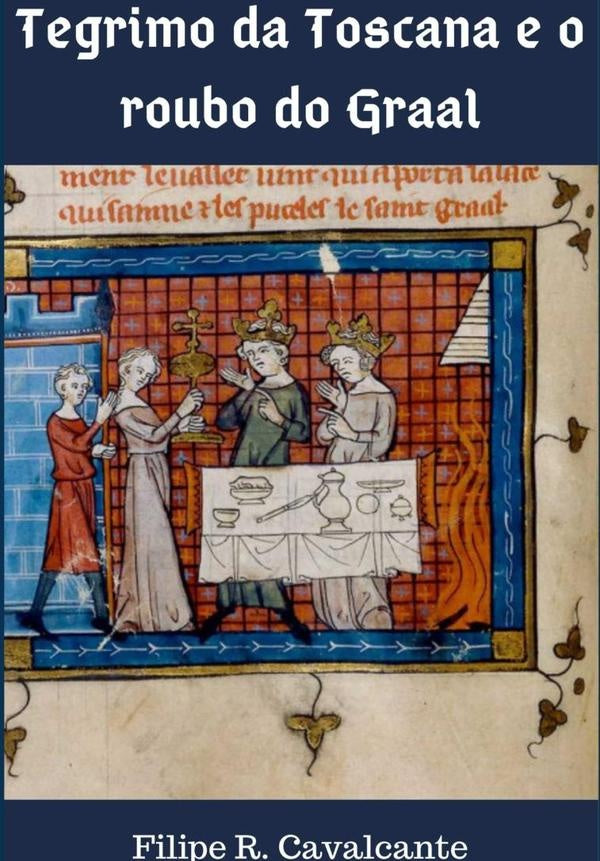 Tegrimo da Toscana e o
roubo do Graal
ment le uallet
qui samne & les puceles le saint graal
Filipe R. Cavalcante